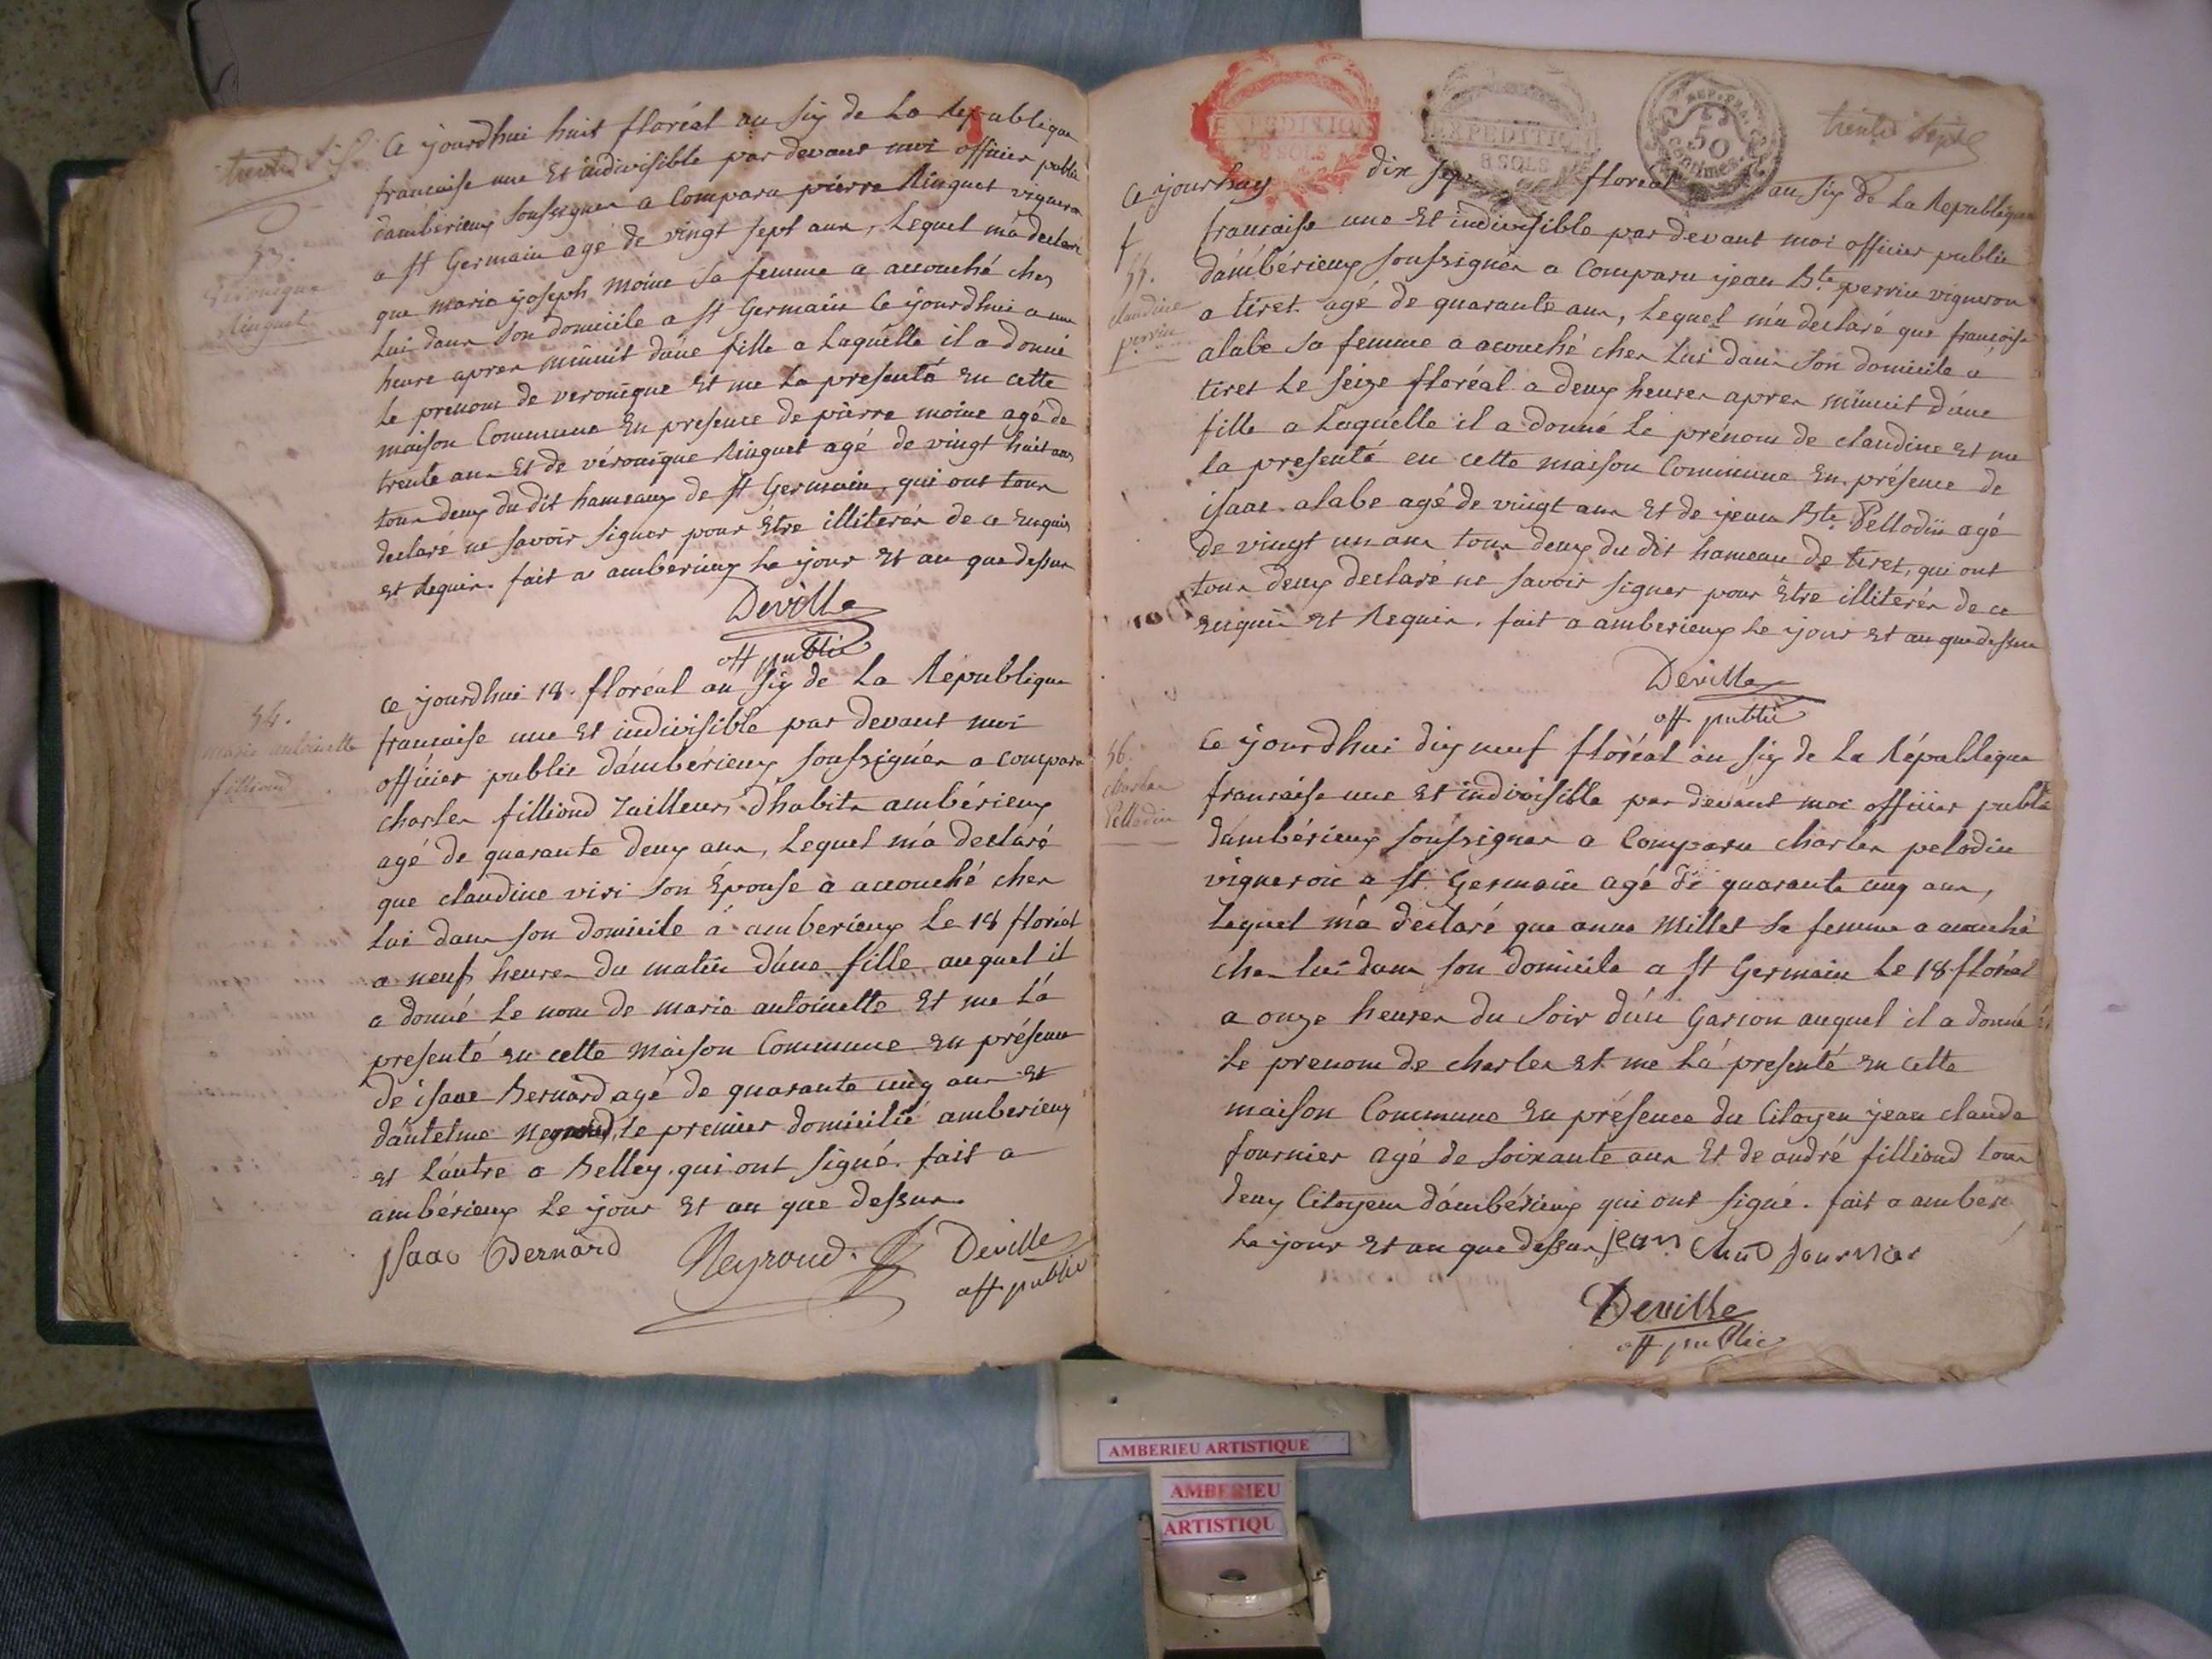 Ce jourdhui huit floréal an six de La Republique
francaise une Et indivisible par devant moi officier public
dambérieux soussignés a Comparu pierre Ringuet vigneron
a st Germain agé de vingt sept ans, Lequel ma declaré
que marie joseph moine sa femme a accouché ches
Lui dans son domicile a st Germain Ce jourdhui a une
heure apres minuit d'une fille a Laquelle il a donné
Le prenom de veronique Et me La presenté En cette
maison Commune En presence de pierre moine agé de
trente ans Et de véronique Ringuet agé de vingt huit ans
tous deux du dit hameaux de st Germain, qui ont tous
declaré ne savoir signer pour Être illiterés de ce Enquis
et Requis. fait a amberieux Le jour Et an que dessus
Deville
off public
53.
Veronique
Ringuet
ce jourdhui 18. floréal an six de La République
francaise une Et indivisible par devant moi
officier public d'ambérieux soussignés a comparu
charles filliond Tailleurs d'habits ambérieux
agé de quarante deux ans, Lequel m'a declaré
que claudine viri son Épouse a accouché ches
Lui dans son domicile a amberieux Le 18 floréal
a neuf heures du matin d'une fille auquel il
a donné Le nom de marie antoinette Et me L'a
presenté En cette maison Commune En présence
de isaac Bernard agé de quarante cinq ans Et
d'antelme Neyroud, Le premier domicilié amberieux
et L'autre a Belley. qui ont signé. fait a
ambérieux Le jour Et an que dessus.
Isaac Bernard Neyroud. Deville
off public
54.
marie antoinette
filliond
EXPEDITION
8 SOLS
EXPEDITION
8 SOLS
REP. FRA.
50
Centimes.
trente Sept
Ce jourhuy dix sept floréal an six de La Republique
francaise une Et indivisible par devant moi officier public
d'ambérieux soussignés a Comparu jean Bte perrin vigneron
a tiret agé de quarante ans, Lequel m'a déclaré que francoise
alabe sa femme a acouché ches Lui dans son domicile a
tiret Le seize floréal a deux heures apres minuit d'une
fille a Laquelle il a donné Le prénom de claudine Et me
La presenté en cette maison Commune En présence de
isaac alabe agé de vingt ans Et de jean Bte Pellodin agé
de vingt un ans tous deux du dit hameau de tiret, qui ont
tous deux declaré ne savoir signer pour Être illiterés de ce
Enquis Et Requis. fait a amberieux Le jour Et an que dessus
Deville
off. public
55.
claudine
perrin
Ce jourdhui dix neuf floréal an six de La République
francaise une Et indivisible par devant moi officier public
d'ambérieux soussignés a Comparu charles pelodin
vigneron a st Germain agé de quarante cinq ans,
Lequel m'a declaré que anne Millet sa femme a acouché
ches lui dans son domicile a st Germain Le 18 floréal
a onze heures du soir d'un Garson auquel il a donné
Le prenom de charles Et me L'a presenté En Cette
maison Commune En présence du Citoyen jean claude
fournier agé de soixante ans Et de andré filliond tous
deux Citoyens d'ambérieux qui ont signé. fait a amberi
Le jour Et an que dessus jean
Deville
off public
56.
charles
Pellodin
AMBERIEU ARTISTIQUE
AMBERIEU
ARTISTIQU